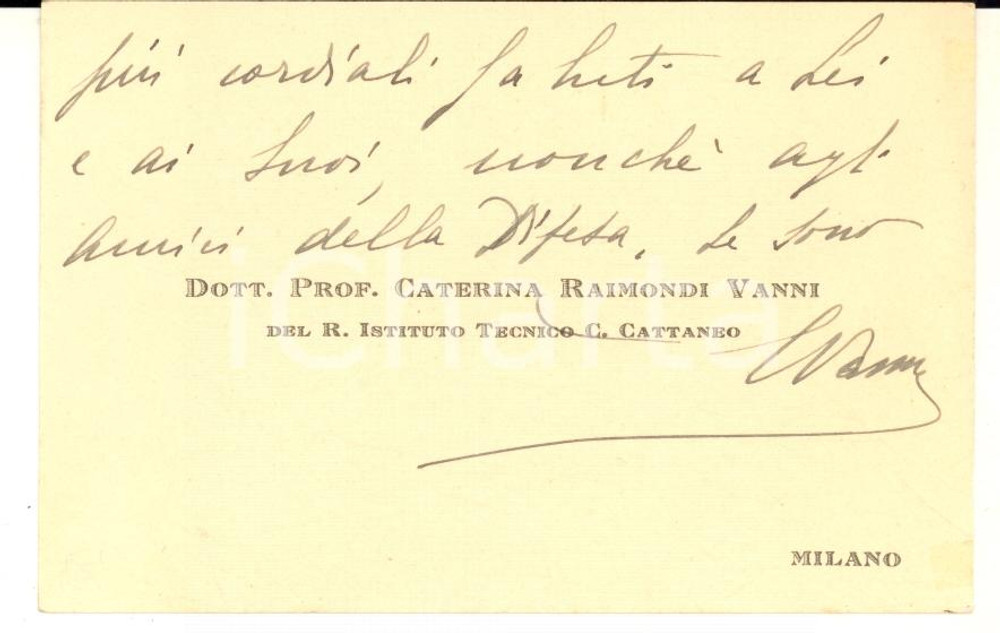 più cordiali saluti a Lei
e ai Suoi, nonchè agli
Amici della Difesa. Le sono
DOTT. PROF. CATERINA RAIMONDI VANNI
DEL R. ISTITUTO TECNICO C. CATTANEO
CVanni
MILANO
iCharta